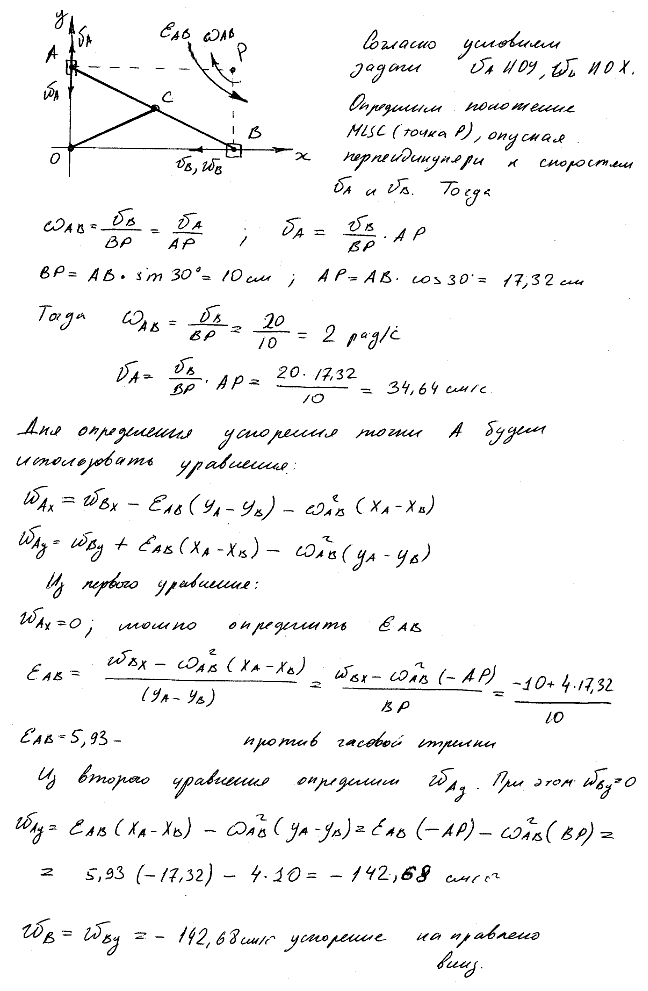 y
v̄A
A
w̄A
εAB
ωAB
P
C
O
B
v̄B, w̄B
x
Согласно условиям
задачи v̄A ∥ OY, w̄B ∥ OX.
Определим положение
МЦС (точка P), опуская
перпендикуляры к скоростям
v̄A и v̄B. Тогда
ωAB = vB/BP = vA/AP ; vA = vB/BP · AP
BP = AB · sin 30° = 10 см ; AP = AB · cos 30° = 17,32 см
Тогда ωAB = vB/BP = 20/10 = 2 рад/с
vA = vB/BP · AP = 20·17,32/10 = 34,64 см/с.
Для определения ускорения точки A будем
использовать уравнения:
wAx = wBx − εAB(yA − yB) − ω²AB (xA − xB)
wAy = wBy + εAB(xA − xB) − ω²AB(yA − yB)
Из первого уравнения:
wAx = 0; можно определить εAB
εAB = wBx − ω²AB (xA − xB)/(yA − yB) = wBx − ω²AB (−AP)/BP = −10 + 4·17,32/10
εAB = 5,93 − против часовой стрелки
Из второго уравнения определим wAy. При этом wBy = 0
wAy = εAB(xA − xB) − ω²AB(yA − yB) = εAB(−AP) − ω²AB(BP) =
= 5,93 (−17,32) − 4·10 = −142,68 см/с²
wB = wBy = −142,68 см/с ускорение направлено
вниз.